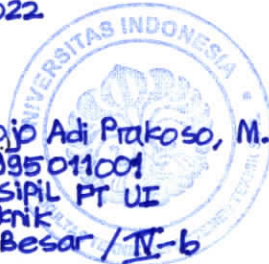 2022
UNIVERSITAS INDONESIA
Adi Prakoso, M.
195011001
Sipil PT UI
Teknik
Besar / IV-b